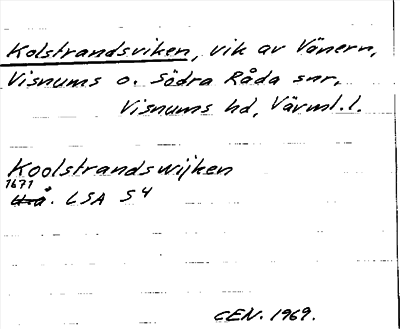 Kolstrandsviken, vik av Vänern,
Visnums o. Södra Råda snr,
Visnums hd, Värml.l.
Koolstrandswijken
1671
U.å. LSA S4
CEN. 1969.